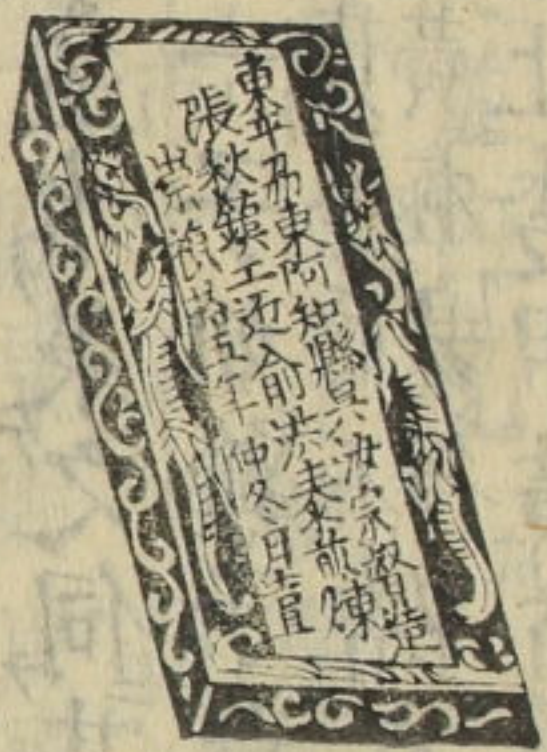 東平州東阿知縣吳汝宗督造
張秋鎮工匠俞洪煎煉
崇禎拾五年仲冬月置